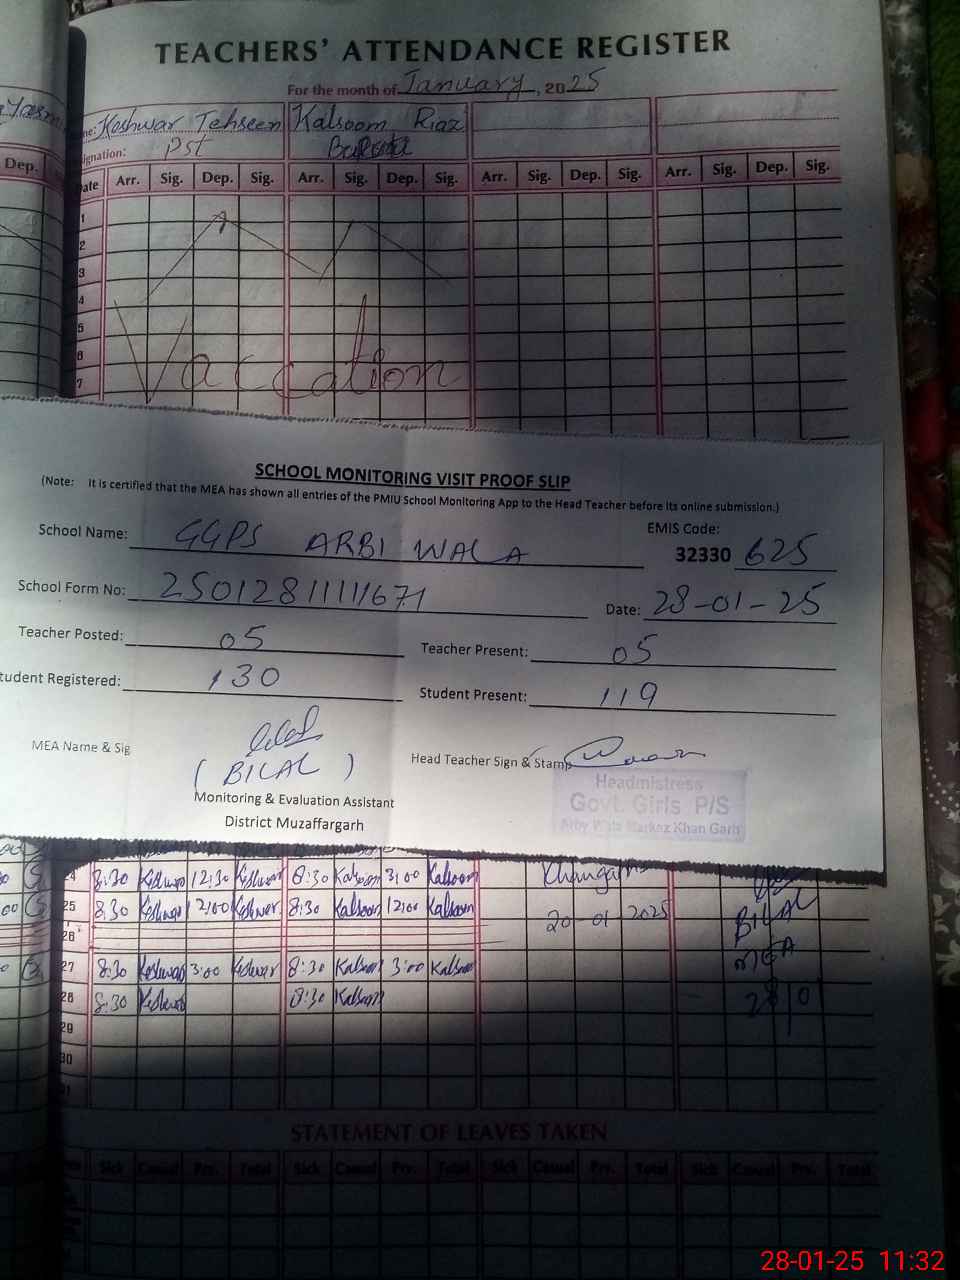 TEACHERS' ATTENDANCE REGISTER
For the month of January, 2025
Keshwar Tehseen Kalsoom Riaz
ignation: Pst
Dep. Date Arr. Sig. Dep. Sig. Arr. Sig. Dep. Sig. Arr. Sig. Dep. Sig. Arr. Sig. Dep. Sig.
1
2
3
4
5
6
7
Vaccation
SCHOOL MONITORING VISIT PROOF SLIP
(Note: It is certified that the MEA has shown all entries of the PMIU School Monitoring App to the Head Teacher before its online submission.)
School Name: GGPS ARBI WALA EMIS Code:
32330 625
School Form No: 25012811111671 Date: 28-01-25
Teacher Posted: 05 Teacher Present: 05
tudent Registered: 130 Student Present: 119
MEA Name & Sig Head Teacher Sign & Stamp
(BILAL)
Monitoring & Evaluation Assistant
District Muzaffargarh
Headmistress
Govt. Girls P/S
Arby Wala Markaz Khan Garh
8:30 Keshwar 12:30 Keshwar 8:30 Kalsoom 3:00 Kalsoom
25 8:30 Keshwar 12:00 Keshwar 8:30 Kalsoom 12:00 Kalsoom 20-01-2025 BILAL
26 MEA
27 8:30 Keshwar 3:00 Keshwar 8:30 Kalsoom 3:00 Kalsoom
28 8:30 Keshwar 8:30 Kalsoom
29
30
STATEMENT OF LEAVES TAKEN
Sick Casual Prv. Total Sick Casual Prv. Total Sick Casual Prv. Total Sick Casual Prv. Total
28-01-25 11:32